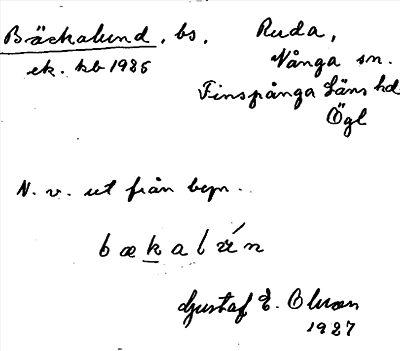 Bäckalund, bs. Ruda,
ek. kb 1926 Vånga sn.
Finspånga Läns hd.
Ögl
N. v. ut från byn.
bækalún
Gustaf E. Olsson
1927